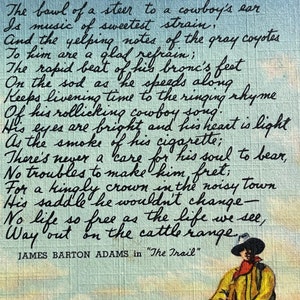 The bawl of a steer to a cowboy's ear
Is music of sweetest strain;
And the yelping notes of the gray coyotes
To him are a glad refrain;
The rapid beat of his bronc's feet
On the sod as he speeds along
Keeps livening time to the ringing rhyme
Of his rollicking cowboy song.
His eyes are bright and his heart is light
As the smoke of his cigarette;
There's never a care for his soul to bear,
No troubles to make him fret;
For a kingly crown in the noisy town
His saddle he wouldn't change—
No life so free as the life we see,
Way out on the cattle range.
JAMES BARTON ADAMS in "The Trail"